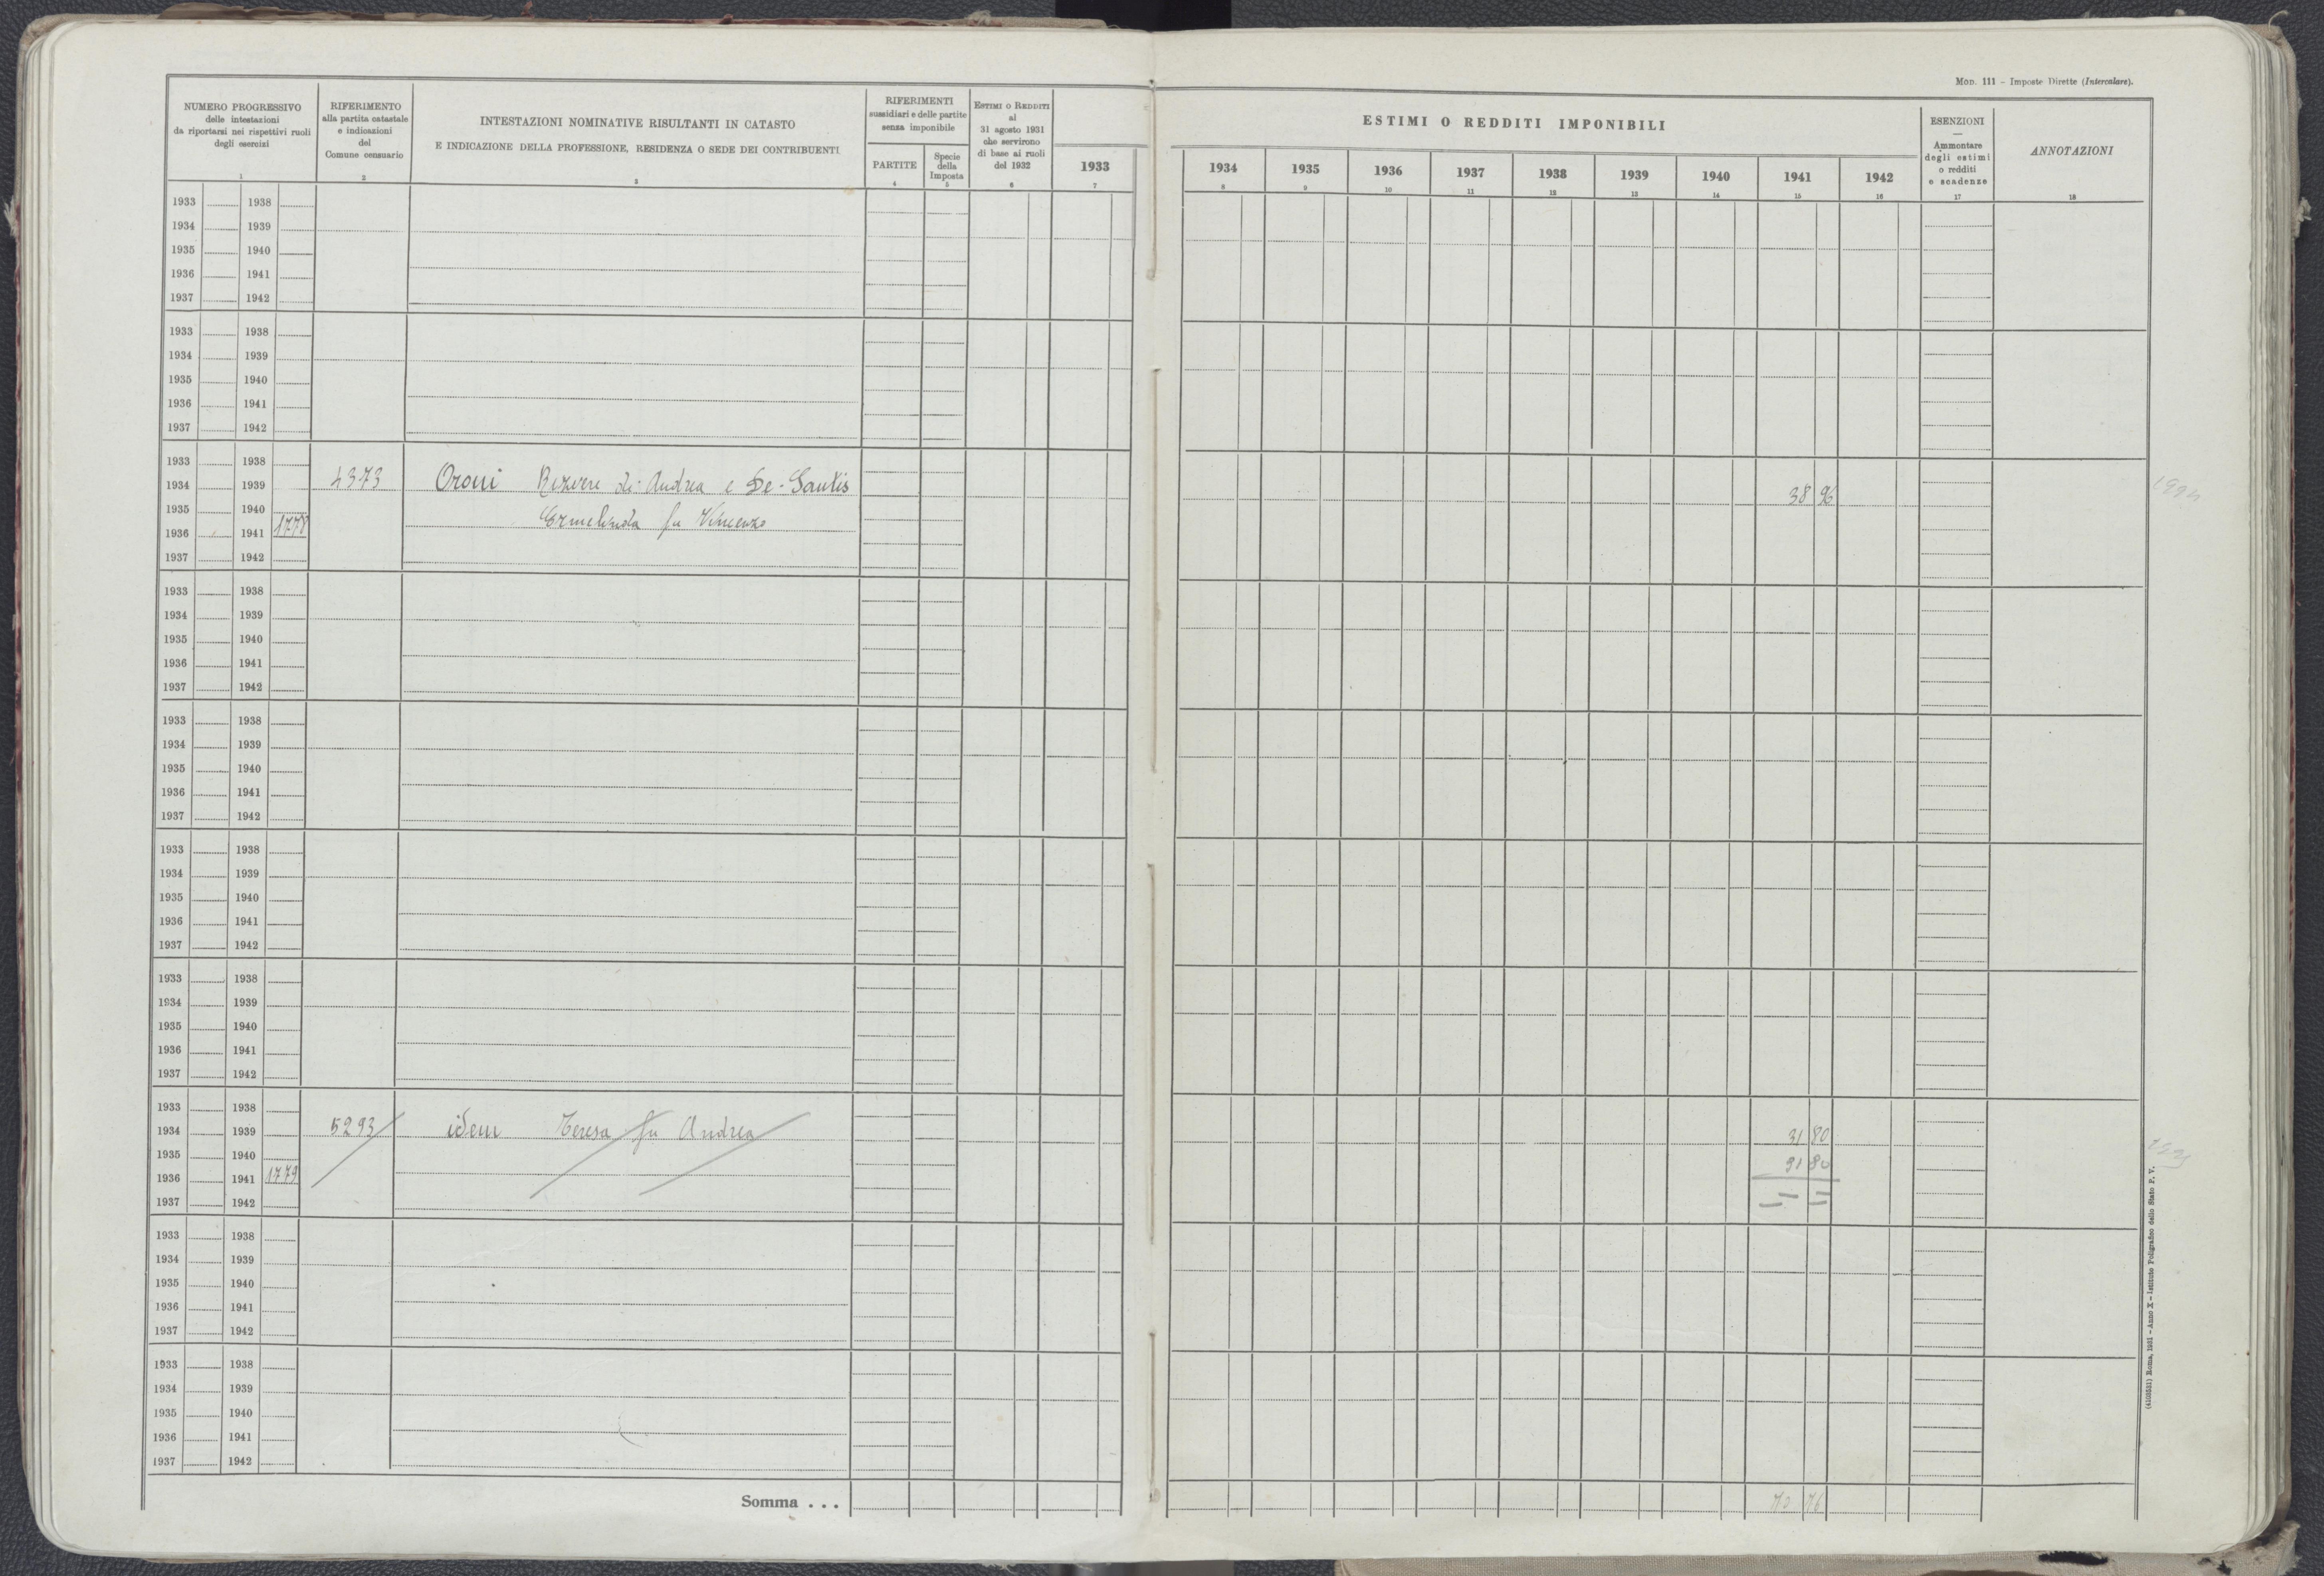 Mod. 111 - Imposte Dirette (Intercalare).
NUMERO PROGRESSIVO
delle intestazioni
da riportarsi nei rispettivi ruoli
degli esercizi
1
RIFERIMENTO
alla partita catastale
e indicazioni
del
Comune censuario
2
INTESTAZIONI NOMINATIVE RISULTANTI IN CATASTO
E INDICAZIONE DELLA PROFESSIONE, RESIDENZA O SEDE DEI CONTRIBUENTI
3
RIFERIMENTI
sussidiari e delle partite
senza imponibile
PARTITE
4
Specie
della
Imposta
5
Estimi o Redditi
al
31 agosto 1931
che servirono
di base ai ruoli
del 1932
6
ESTIMI O REDDITI IMPONIBILI
1933 1934 1935 1936 1937 1938 1939 1940 1941 1942
7 8 9 10 11 12 13 14 15 16
ESENZIONI
—
Ammontare
degli estimi
o redditi
e scadenze
17
ANNOTAZIONI
18
1933 1938
1934 1939
1935 1940
1936 1941
1937 1942
1933 1938
1934 1939
1935 1940
1936 1941
1937 1942
1933 1938
1934 1939 4373 Oroni di Andrea e De-Santis 38 96
1935 1940 Ermelinda fu Vincenzo
1936 1941 1778
1937 1942
1933 1938
1934 1939
1935 1940
1936 1941
1937 1942
1933 1938
1934 1939
1935 1940
1936 1941
1937 1942
1933 1938
1934 1939
1935 1940
1936 1941
1937 1942
1933 1938
1934 1939
1935 1940
1936 1941
1937 1942
1933 1938
1934 1939 5293 idem Teresa fu Andrea 31 80
1935 1940 31 80
1936 1941 1779
1937 1942
1933 1938
1934 1939
1935 1940
1936 1941
1937 1942
1933 1938
1934 1939
1935 1940
1936 1941
1937 1942
Somma . . . 70 76
(4103531) Roma, 1931 - Anno X - Istituto Poligrafico dello Stato P. V.